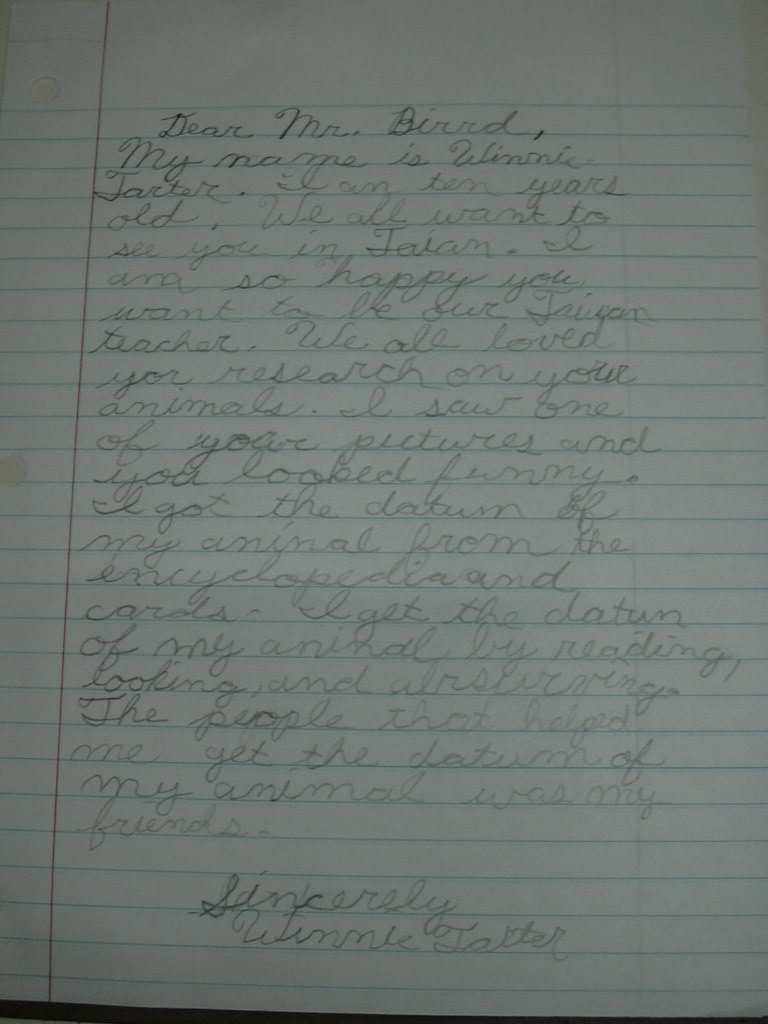 Dear Mr. Birrd,
My name is Winnie
Tarter. I an ten years
old. We all want to
see you in Taian. I
am so happy you
want to be our Taiyan
teacher. We all loved
yor research on your
animals. I saw one
of your pictures and
you looked funny.
I got the datum of
my aninal from the
encyclopedia and
cards. I get the datun
of my animal by reading,
looking, and
The people that helped
me get the datum of
my animal was my
friends.
Sincerely
Winnie Tarter